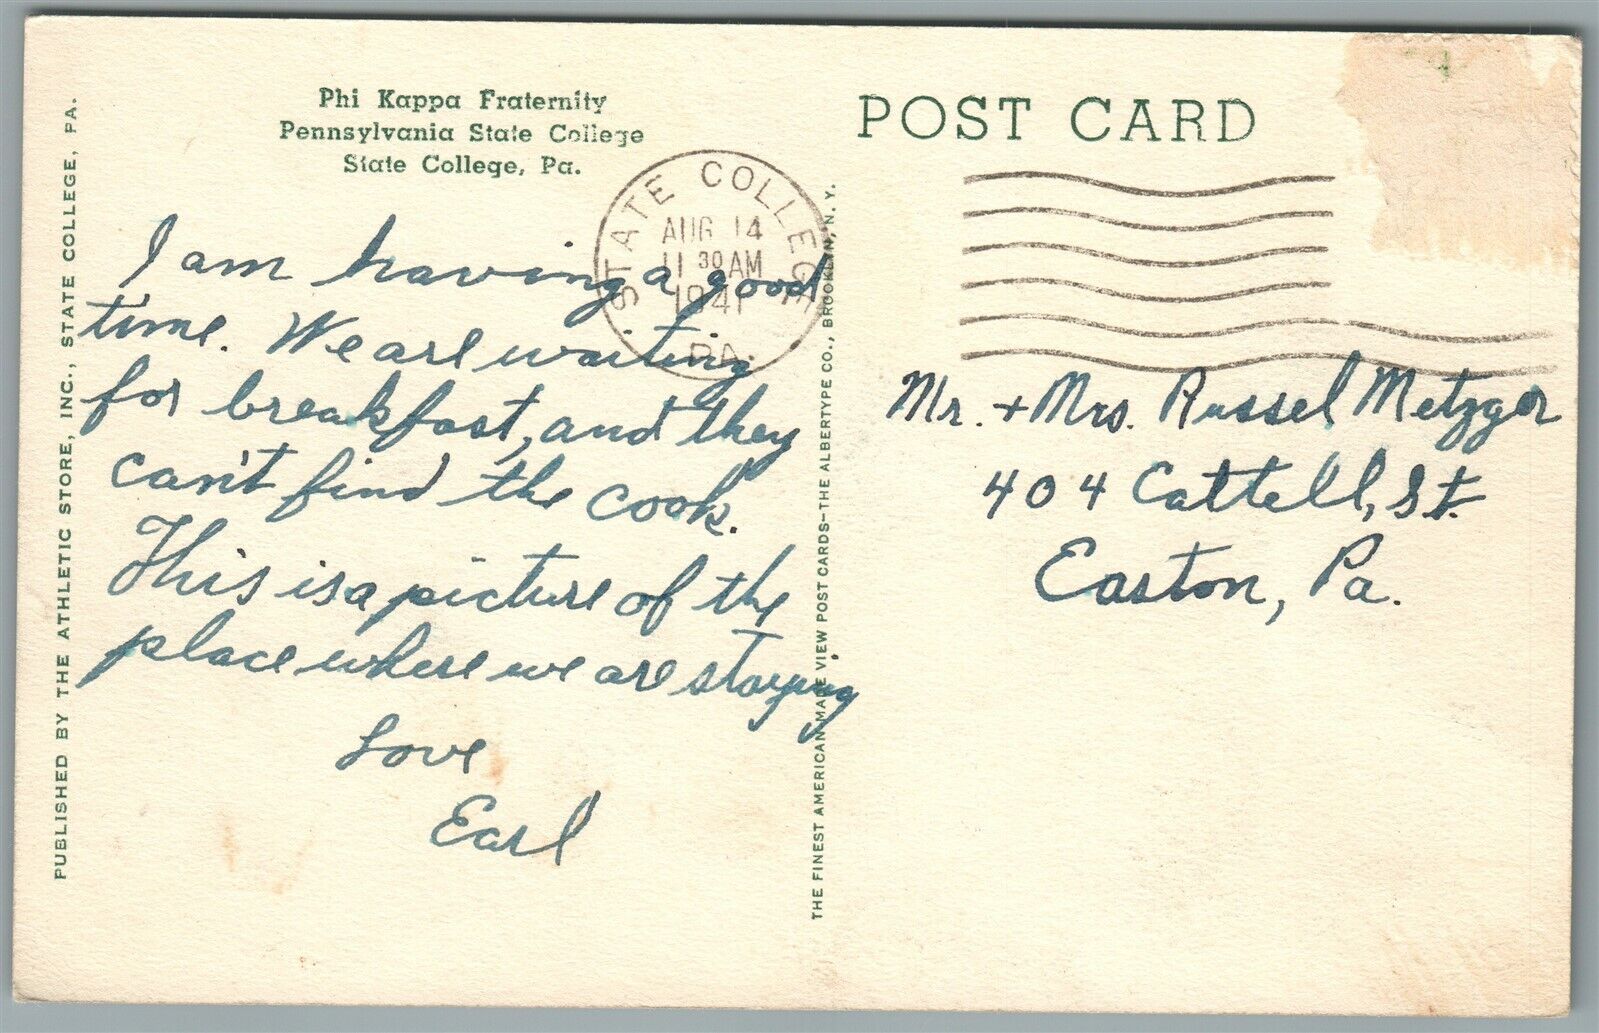 Phi Kappa Fraternity
Pennsylvania State College
State College, Pa.
POST CARD
STATE COLLEGE
AUG 14
11 30 AM
1941
PA.
I am having a good
time. We are waiting
for breakfast, and they
can't find the cook.
This is a picture of the
place where we are staying.
Love
Earl
Mr. + Mrs. Russel Metzger
404 Cattell, St.
Easton, Pa.
PUBLISHED BY THE ATHLETIC STORE, INC., STATE COLLEGE, PA.
THE FINEST AMERICAN MADE VIEW POST CARDS—THE ALBERTYPE CO., BROOKLYN, N. Y.